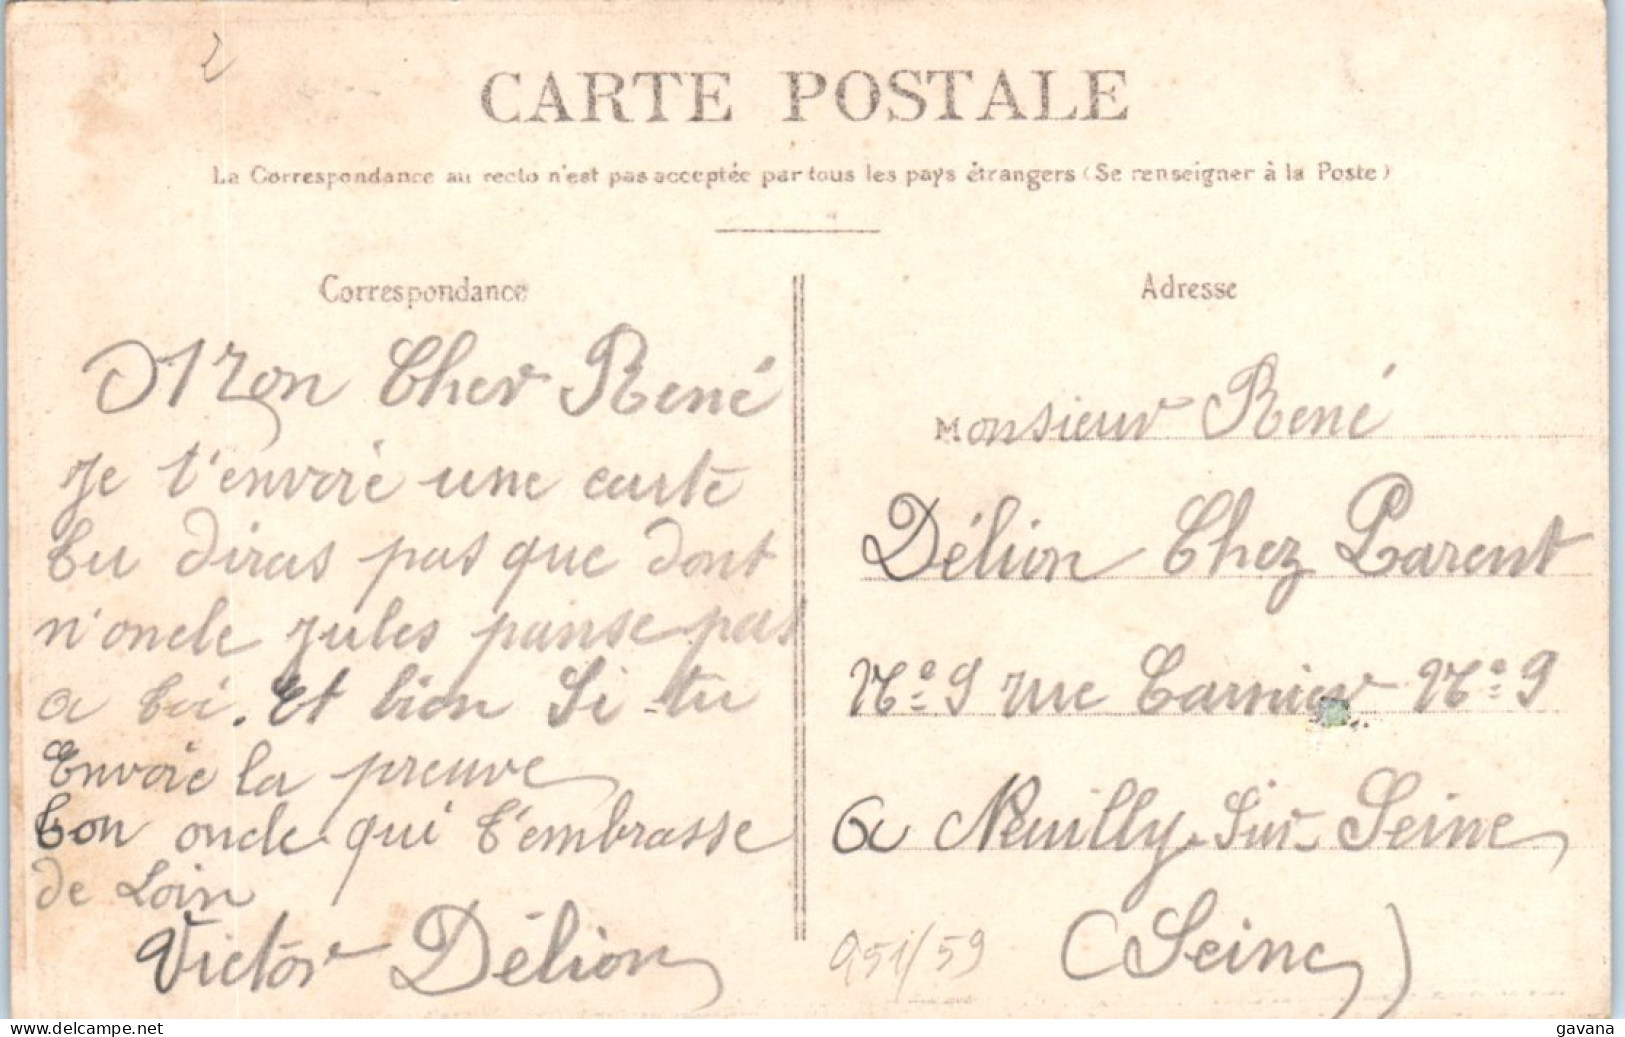 2
CARTE POSTALE
La Correspondance au recto n'est pas acceptée par tous les pays étrangers (Se renseigner à la Poste)
Correspondance
Mon Cher René
Je t'envoie une carte
tu diras pas que dont
n'oncle Jules panse pas
a toi. Et bien Si tu
Envoie la preuve
ton oncle qui t'embrasse
de Loin
Victor Délion
Adresse
Monsieur René
Délion Chez Parent
No 9 rue Carnier No 9
a Neuilly-Sur-Seine
(Seine)
951/59
www.delcampe.net
gavana